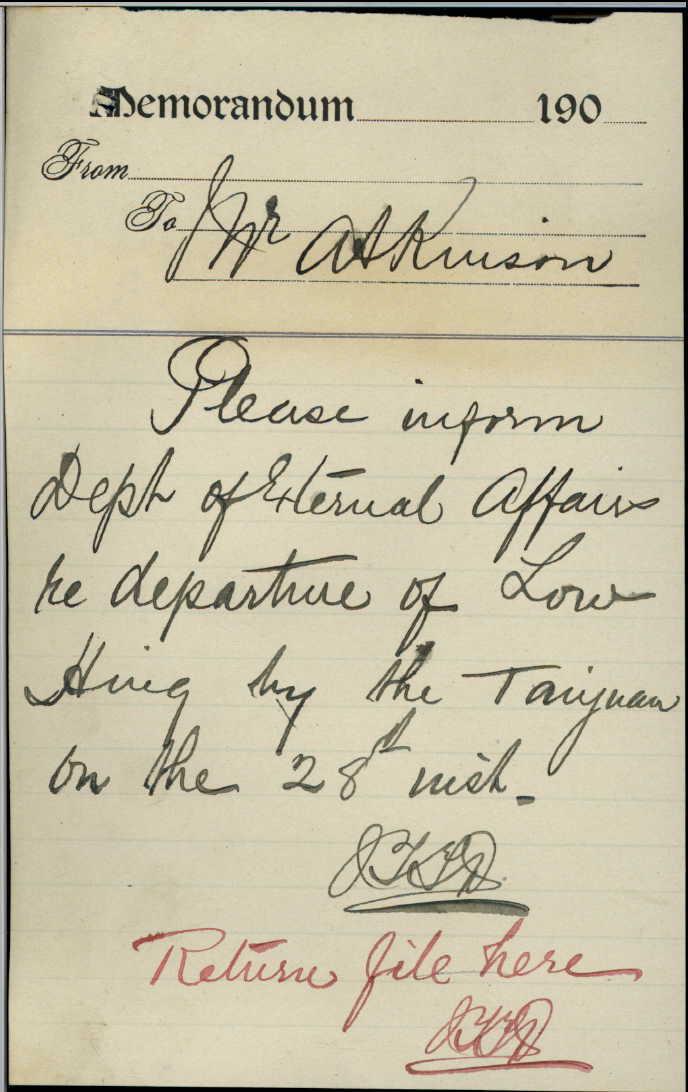 Memorandum 190
From
To Mr Atkinson
Please inform
Dept of External Affairs
re departure of Low
Hing by the Taiyuan
on the 28th inst.
Return file here